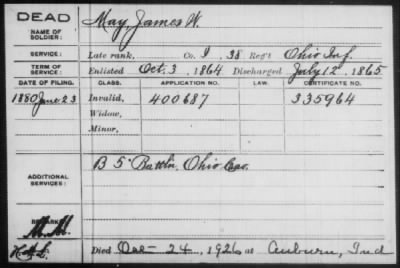 DEAD
NAME OF SOLDIER: May, James W.
SERVICE: Late rank, Co. I, 38 Reg't Ohio Inf.
TERM OF SERVICE: Enlisted Oct. 3, 1864 Discharged July 12, 1865
DATE OF FILING. CLASS. APPLICATION NO. LAW. CERTIFICATE NO.
1880 June 23 Invalid, 400687 335964
Widow,
Minor,
ADDITIONAL SERVICES: B 5" Battln. Ohio Cav.
REMARKS:
M.M.
Died Dec- 24, 1926 at Auburn, Ind